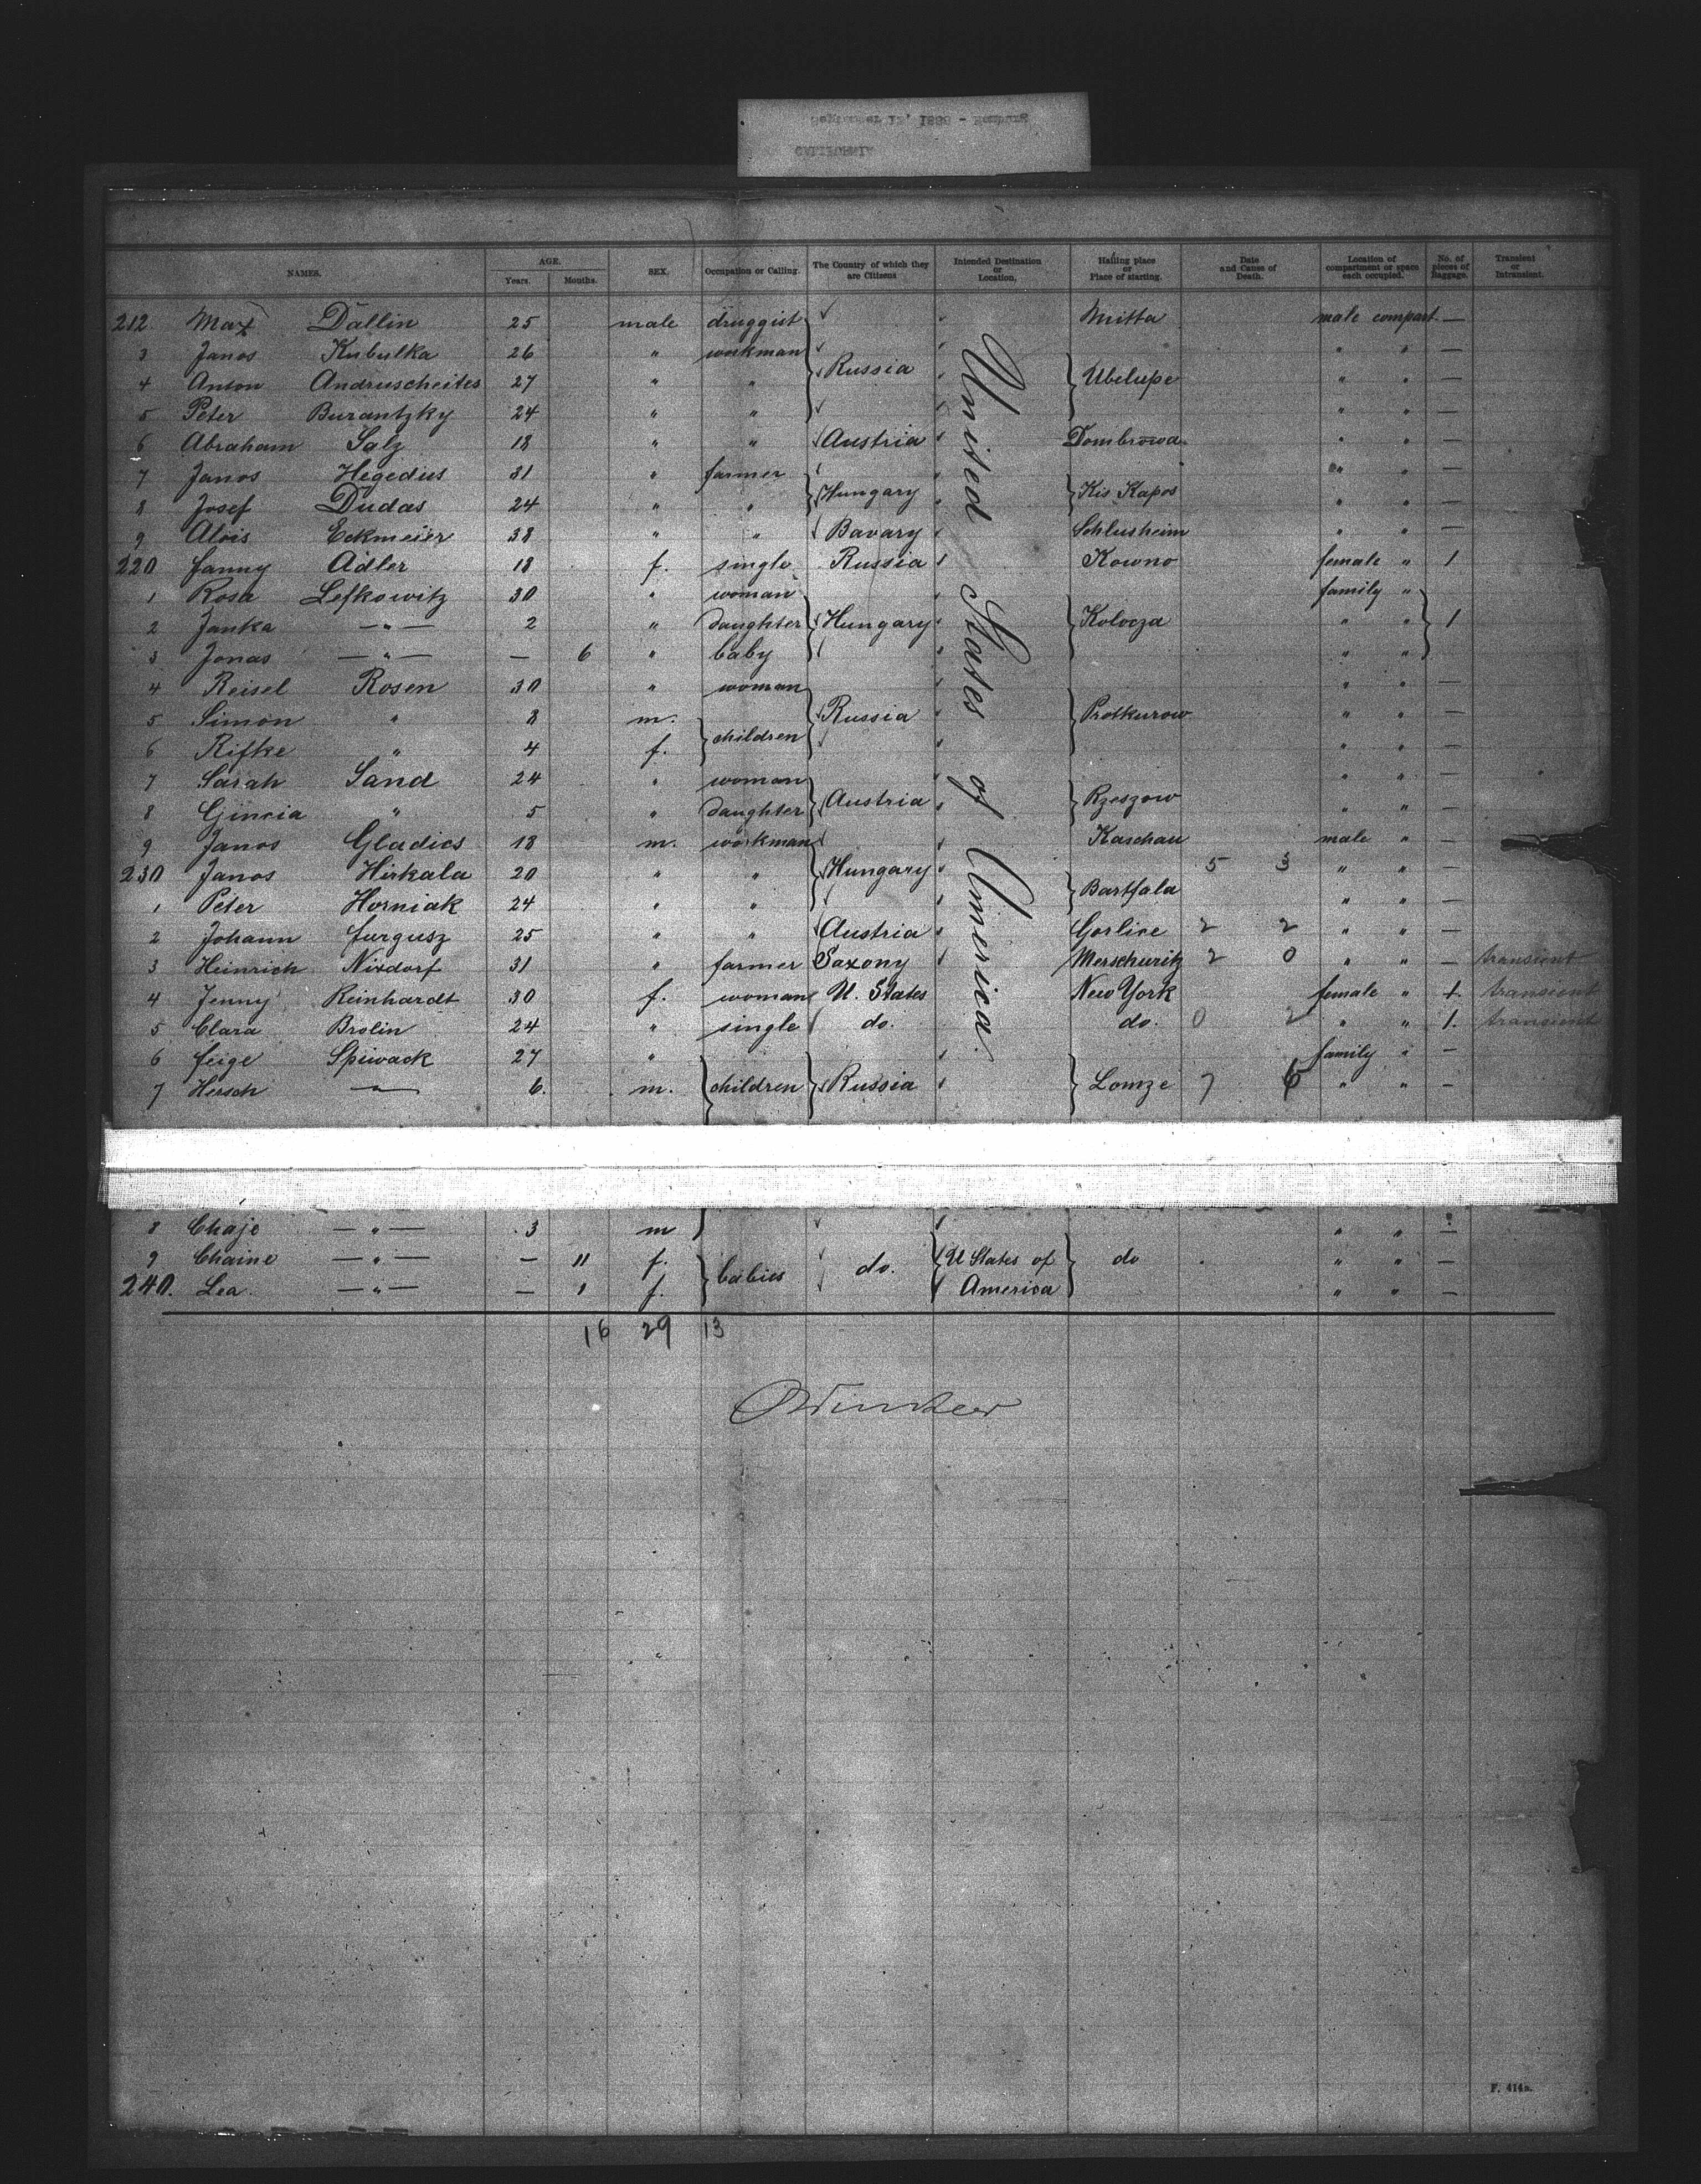 NAMES. AGE. Years. Months. SEX. Occupation or Calling. The Country of which they are Citizens Intended Destination or Location, Hailing place or Place of starting. Date and Cause of Death. Location of compartment or space each occupied. No. of pieces of Baggage. Transient or Intransient.
United States of America.
212. Max Dallin 25 male druggist Mitta male compart —
3 Janos Kubulka 26 " workman " " —
4 Anton Andruscheites 27 " " Russia Ubelupe " " —
5 Peter Burantzky 24 " " " " —
6 Abraham Salz 18 " " Austria Dombrowa " " —
7 Janos Hegedus 31 " farmer " " —
8 Josef Dudas 24 " " Hungary Kis Kapos " " —
9 Alois Eckmeier 38 " " Bavary Schlusheim " " —
220 Fanny Adler 18 f. single Russia Kowno female " 1
1 Rosa Lefkowitz 30 " woman family "
2 Janka —"— 2 " daughter Hungary Kolocza " " 1
3 Jonas —"— — 6 " baby " "
4 Reisel Rosen 30 " woman " " —
5 Simon " 8 m. children Russia Proskurow " " —
6 Rifke " 4 f. " " —
7 Sarah Sand 24 " woman " " —
8 " 5 " daughter Austria Rzeszow " " —
9 Janos Gladics 18 m. workman Kaschau male " —
230 Janos Hirkala 20 " " Hungary 5 3 " " —
1 Peter Horniak 24 " " Bartfala " " —
2 Johann Furgusz 25 " " Austria Gorlice 2 2 " " —
3 Heinrich Nixdorf 31 " farmer Saxony 2 0 " " — transient
4 Jenny Reinhardt 30 f. woman U. States New York female " 1. transient
5 Clara Brolin 24 " single do. do. 0 2 " " 1. transient
6 Feige Spiwack 27 " family " —
7 Hersch —"— 6. m. children Russia Lomze 7 6 " " —
8 Chaje —"— 3 m " " —
9 Chaine —"— — 11 f. babies do. U States of America do " " —
240. Lea. —"— — 1 f. " " —
16 29 13
F. 414a.